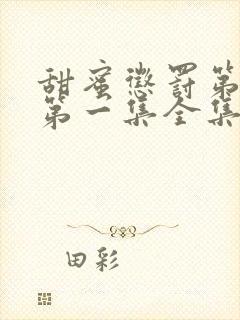 甜蜜惩罚第
第一集全集
田彩